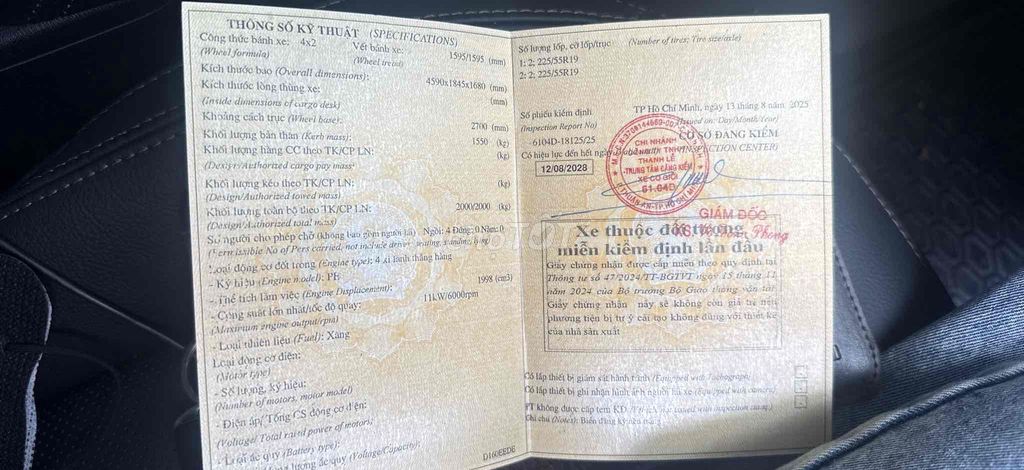 THÔNG SỐ KỸ THUẬT (SPECIFICATIONS)
Công thức bánh xe: 4x2 Vết bánh xe: 1595/1595 (mm)
(Wheel formula) (Wheel tread)
Kích thước bao (Overall dimensions): 4590x1845x1680 (mm)
Kích thước lòng thùng xe: (mm)
(Inside dimensions of cargo desk)
Khoảng cách trục (Wheel base): 2700 (mm)
Khối lượng bản thân (Kerb mass): 1550 (kg)
Khối lượng hàng CC theo TK/CP LN: (kg)
(Design/Authorized cargo pay mass)
Khối lượng kéo theo TK/CP LN: (kg)
(Design/Authorized towed mass)
Khối lượng toàn bộ theo TK/CP LN: 2000/2000 (kg)
(Design/Authorized total mass)
Số người cho phép chở (không bao gồm người lái) Ngồi: 4 Đứng: 0 Nằm: 0
(Permissible No of Pers carried, not include driver: seating, standing, lying)
Loại động cơ đốt trong (Engine type): 4 xi lanh thẳng hàng
- Ký hiệu (Engine model): PE
- Thể tích làm việc (Engine Displacement): 1998 (cm3)
- Công suất lớn nhất/tốc độ quay: kW/6000rpm
(Maximum engine output/rpm)
- Loại nhiên liệu (Fuel): Xăng
Loại động cơ điện:
(Motor type)
- Số lượng, ký hiệu:
(Number of motors, motor model)
- Điện áp/ Tổng CS động cơ điện:
(Voltage/ Total rated power of motors)
- Loại ắc quy (Battery type):
lượng ắc quy (Voltage/Capacity):
D160EED6
Số lượng lốp, cỡ lốp/trục (Number of tires; Tire size/axle)
1: 2; 225/55R19
2: 2; 225/55R19
Số phiếu kiểm định
(Inspection Report No)
6104D-18125/25
TP Hồ Chí Minh, ngày 13 tháng 8 năm 2025
(Issued on: Day/Month/Year)
CƠ SỞ ĐĂNG KIỂM
(INSPECTION CENTER)
Có hiệu lực đến hết ngày
12/08/2028
CHI NHÁNH
THÀNH LỄ
-TRUNG TÂM ĐĂNG KIỂM
XE CƠ GIỚI
61.04D
GIÁM ĐỐC
Phong
Xe thuộc đối tượng
miễn kiểm định lần đầu
Giấy chứng nhận được cấp miễn theo quy định tại
Thông tư số 47/2024/TT-BGTVT ngày 15 tháng 11
năm 2024 của Bộ trưởng Bộ Giao thông vận tải.
Giấy chứng nhận này sẽ không còn giá trị nếu
phương tiện bị tự ý cải tạo không đúng với thiết kế
của nhà sản xuất
Có lắp thiết bị giám sát hành trình (Equipped with Tachograph)
Có lắp thiết bị ghi nhận hình ảnh người lái xe (Equipped with camera)
PT không được cấp tem KĐ
Ghi chú (Notes): Biển đăng ký nền trắng